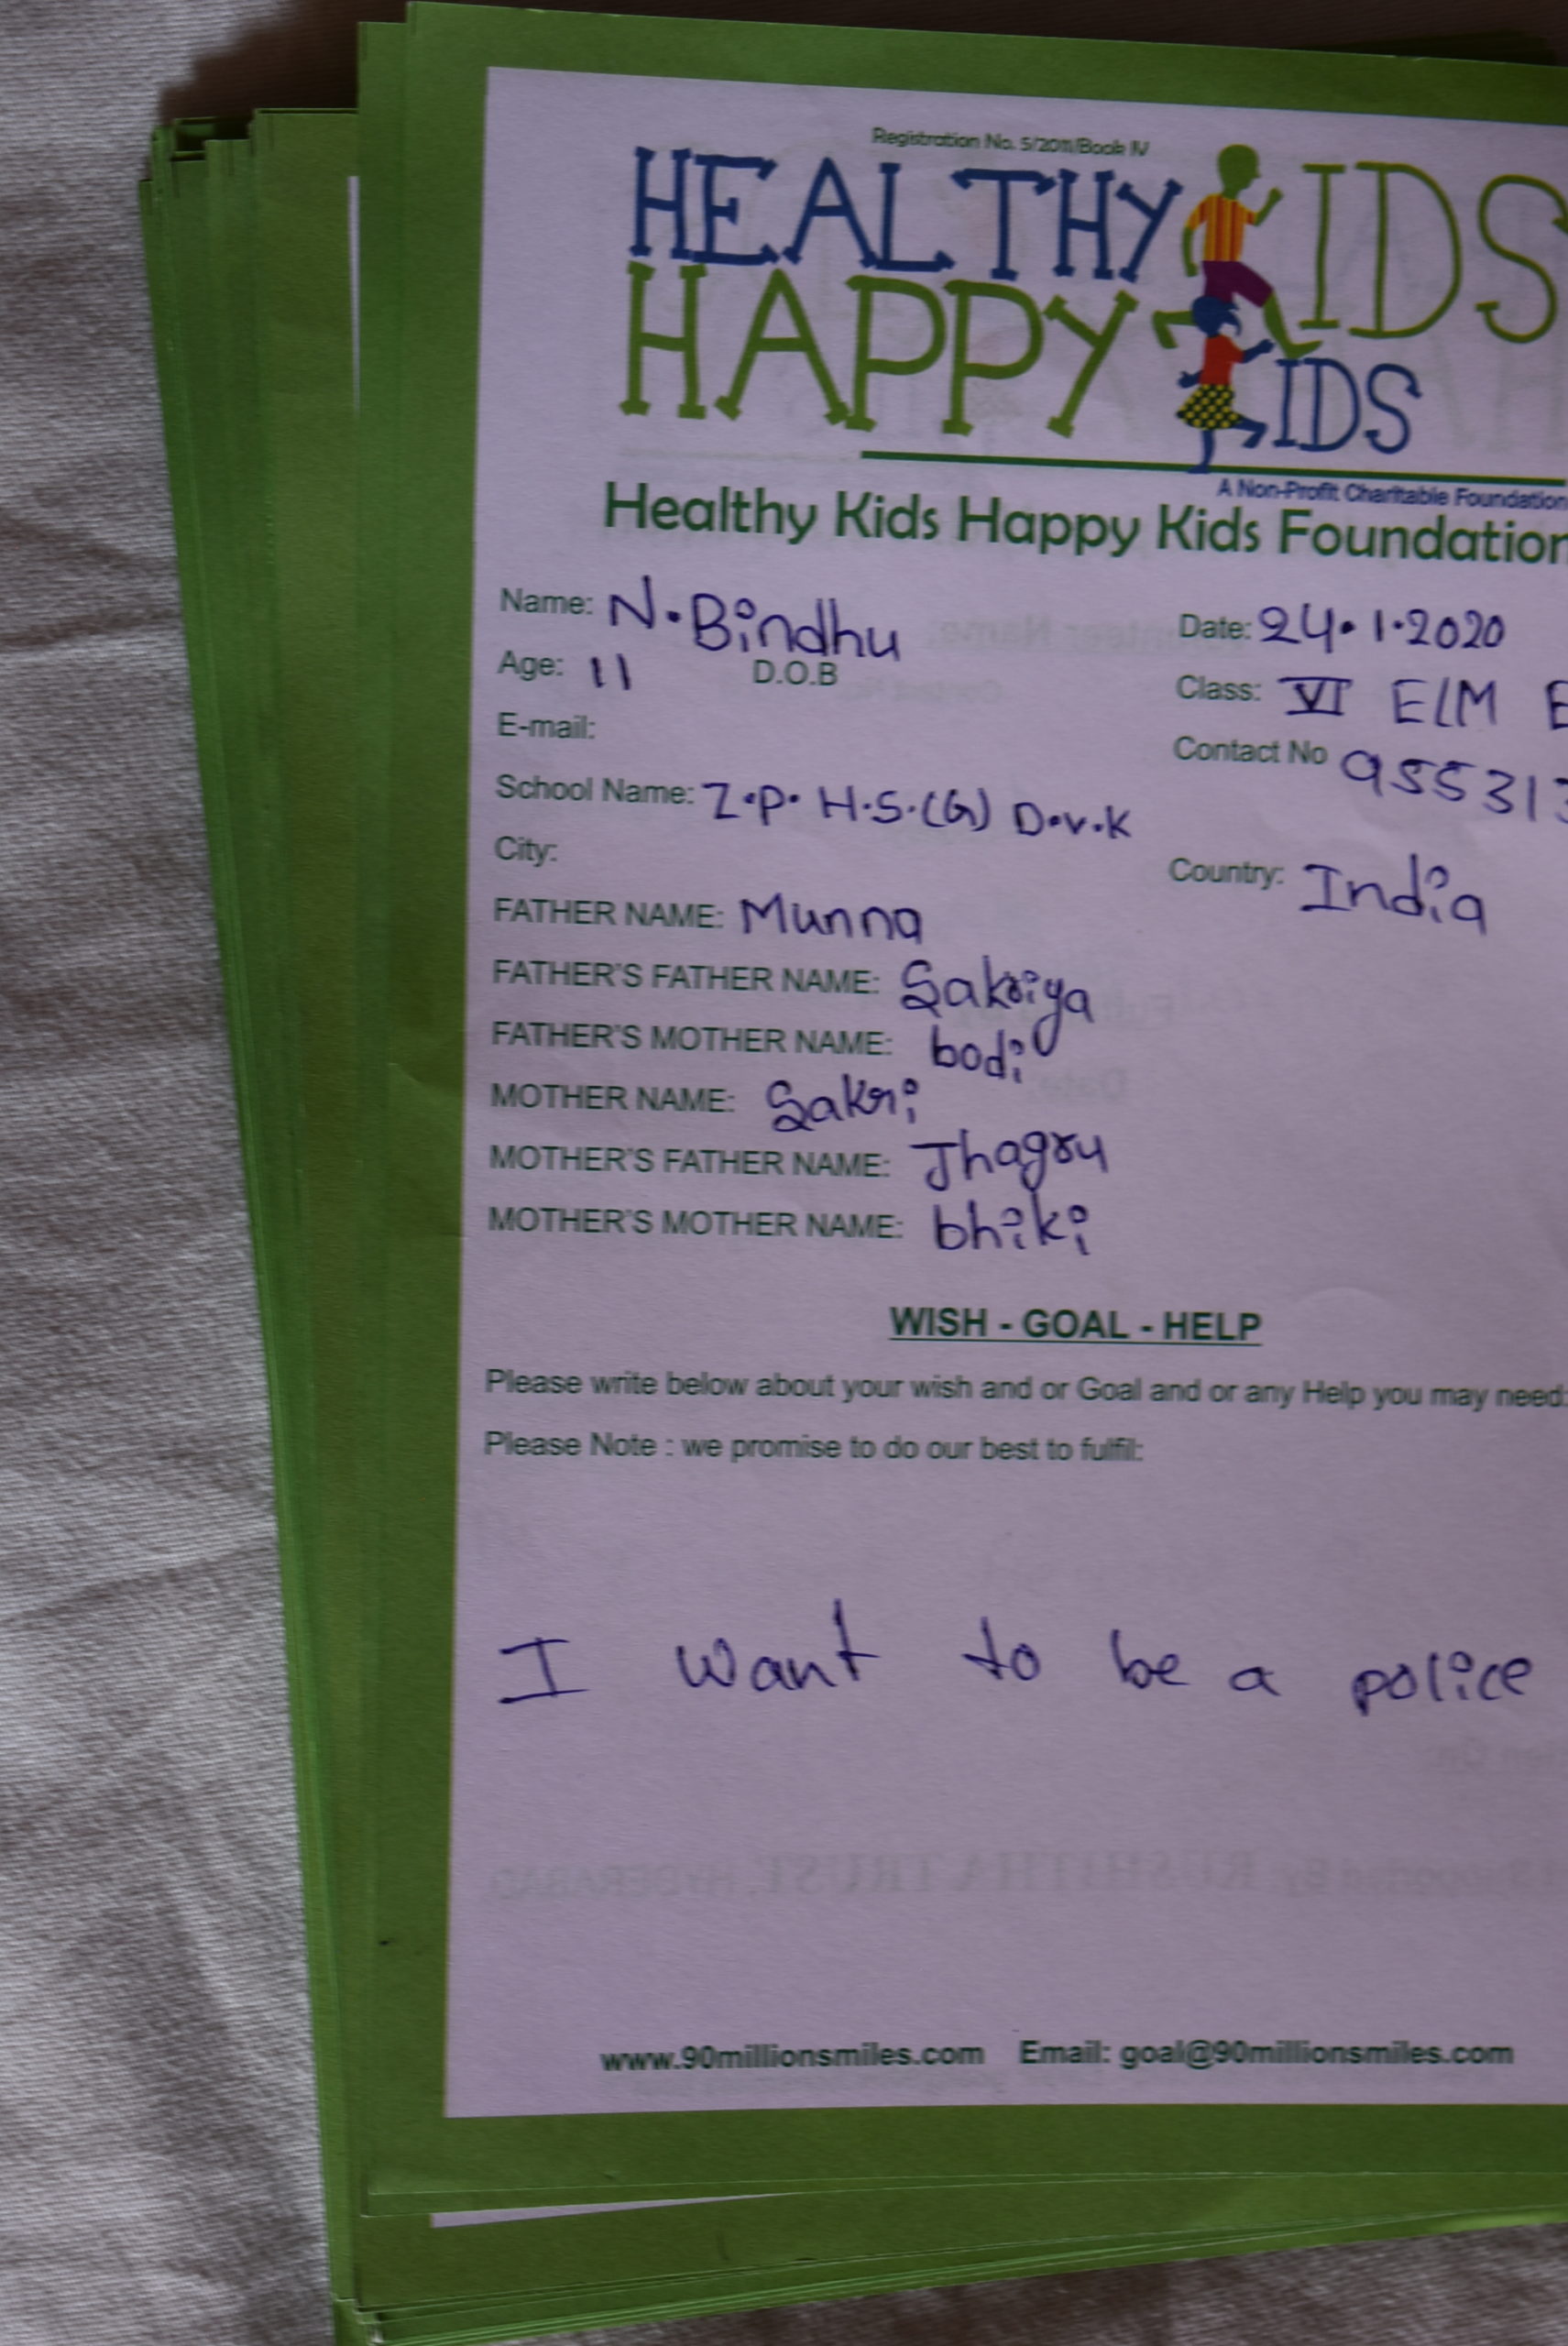 Registration No. 5/2011/Book IV
HEALTHY KIDS
HAPPY KIDS
A Non-Profit Charitable Foundation
Healthy Kids Happy Kids Foundation
Name: N. Bindhu Date: 24.1.2020
Age: 11 D.O.B Class: VI ELM E
E-mail: Contact No 955313
School Name: Z.P. H.S.(G) D.V.K
City: Country: India
FATHER NAME: Munna
FATHER'S FATHER NAME: Sakriya
FATHER'S MOTHER NAME: bodi
MOTHER NAME: Sakri
MOTHER'S FATHER NAME: Jhagru
MOTHER'S MOTHER NAME: bhiki
WISH - GOAL - HELP
Please write below about your wish and or Goal and or any Help you may need:
Please Note : we promise to do our best to fulfil:
I want to be a police
www.90millionsmiles.com Email: goal@90millionsmiles.com